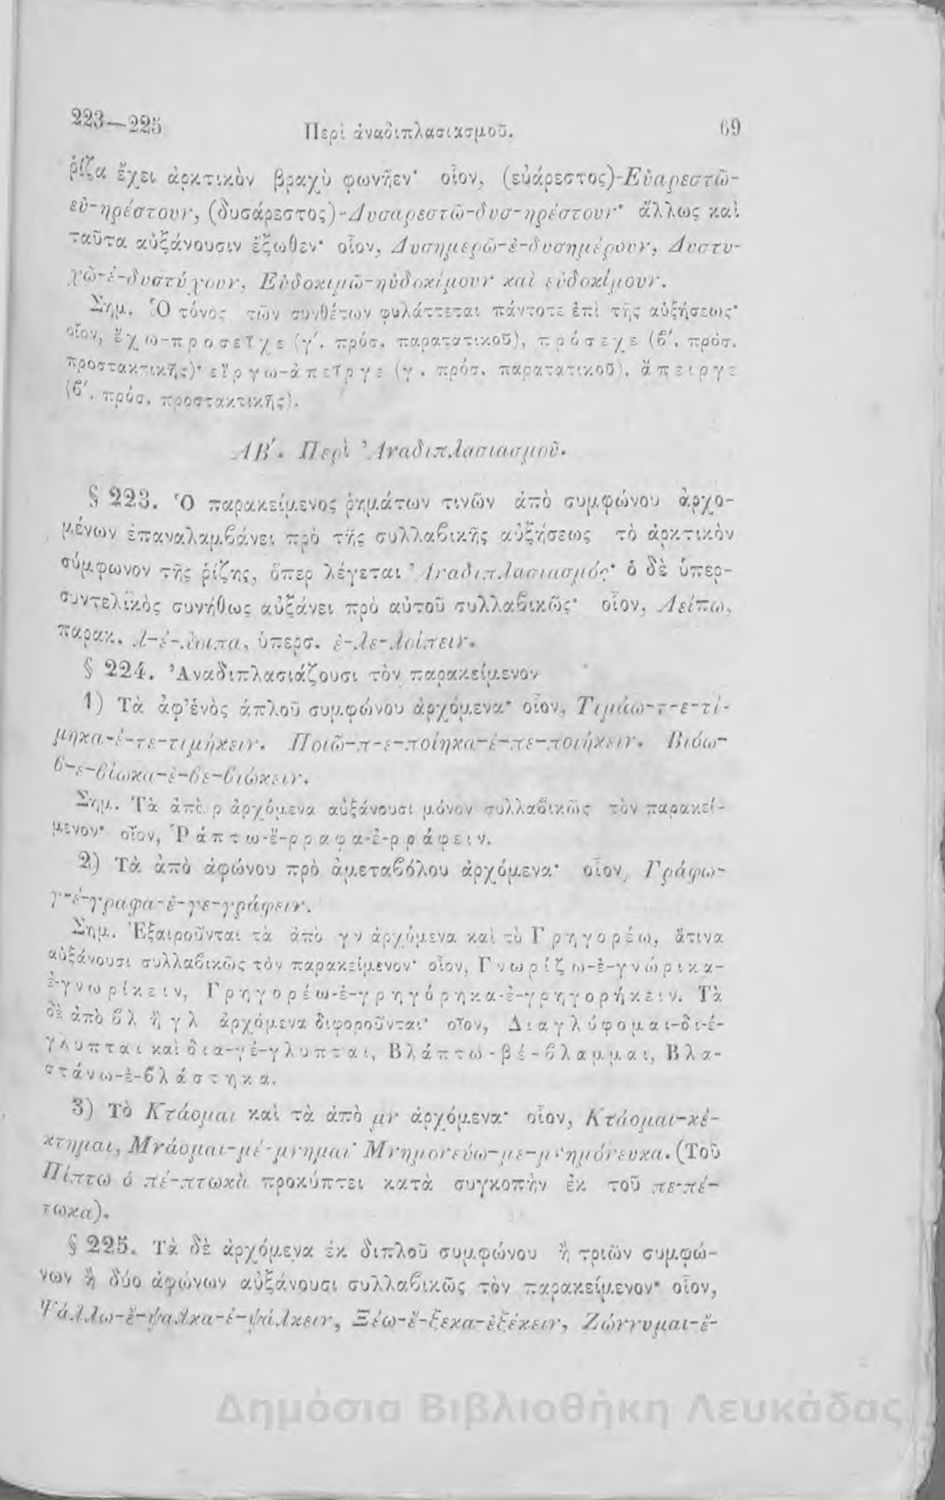 223—225 Περὶ ἀναδιπλασιασμοῦ. 69
ῥίζα ἔχει ἀρκτικὸν βραχὺ φωνῆεν· οἷον, (εὐάρεστος)-Εὐαρεστῶ-
εὐ-ηρέστουν, (δυσάρεστος)-Δυσαρεστῶ-δυσ-ηρέστουν· ἄλλως καὶ
ταῦτα αὐξάνουσιν ἔξωθεν· οἷον, Δυσημερῶ-ἐ-δυσημέρουν, Δυστυ-
χῶ-ἐ-δυστύχουν, Εὐδοκιμῶ-ηὐδοκίμουν καὶ εὐδοκίμουν.
Σημ. Ὁ τόνος τῶν συνθέτων φυλάττεται πάντοτε ἐπὶ τῆς αὐξήσεως·
οἷον, ἔχω-προσεῖχε (γ΄. πρόσ. παρατατικοῦ), πρόσεχε (β΄. πρόσ.
προστακτικῆς)· εἴργω-ἀπεῖργε (γ. πρόσ. παρατατικοῦ), ἄπειργε
(β΄. πρόσ. προστακτικῆς).
ΛΒ΄. Περὶ Ἀναδιπλασιασμοῦ.
§ 223. Ὁ παρακείμενος ῥημάτων τινῶν ἀπὸ συμφώνου ἀρχο-
μένων ἐπαναλαμβάνει πρὸ τῆς συλλαβικῆς αὐξήσεως τὸ ἀρκτικὸν
σύμφωνον τῆς ῥίζης, ὅπερ λέγεται Ἀναδιπλασιασμός· ὁ δὲ ὑπερ-
συντελικὸς συνήθως αὐξάνει πρὸ αὐτοῦ συλλαβικῶς· οἷον, Λείπω,
παρακ. λ-έ-λοιπα, ὑπερσ. ἐ-λε-λοίπειν.
§ 224. Ἀναδιπλασιάζουσι τὸν παρακείμενον
1) Τὰ ἀφ’ἑνὸς ἁπλοῦ συμφώνου ἀρχόμενα· οἷον, Τιμάω-τ-ε-τί-
μηκα-ἐ-τε-τιμήκειν. Ποιῶ-π-ε-ποίηκα-ἐ-πε-ποιήκειν. Βιόω-
β-ε-βίωκα-ἐ-βε-βιώκειν.
Σημ. Τὰ ἀπὸ ρ ἀρχόμενα αὐξάνουσι μόνον συλλαβικῶς τὸν παρακεί-
μενον· οἷον, Ῥάπτω-ἔ-ρραφα-ἐ-ρράφειν.
2) Τὰ ἀπὸ ἀφώνου πρὸ ἀμεταβόλου ἀρχόμενα· οἷον, Γράφω-
γ-έ-γραφα-ἐ-γε-γράφειν.
Σημ. Ἐξαιροῦνται τὰ ἀπὸ γν ἀρχόμενα καὶ τὸ Γρηγορέω, ἅτινα
αὐξάνουσι συλλαβικῶς τὸν παρακείμενον· οἷον, Γνωρίζω-ἐ-γνώρικα-
ἐ-γνωρίκειν, Γρηγορέω-ἐ-γρηγόρηκα-ἐ-γρηγορήκειν. Τὰ
δὲ ἀπὸ βλ ἢ γλ ἀρχόμενα διφοροῦνται· οἷον, Διαγλύφομαι-δι-έ-
γλυπται καὶ δια-γέ-γλυπται, Βλάπτω-βέ-βλαμμαι, Βλα-
στάνω-ἐ-βλάστηκα.
3) Τὸ Κτάομαι καὶ τὰ ἀπὸ μν ἀρχόμενα· οἷον, Κτάομαι-κέ-
κτημαι, Μνάομαι-μέ-μνημαι· Μνημονεύω-με-μνημόνευκα. (Τοῦ
Πίπτω ὁ πέ-πτωκα προκύπτει κατὰ συγκοπὴν ἐκ τοῦ πε-πέ-
τωκα).
§ 225. Τὰ δὲ ἀρχόμενα ἐκ διπλοῦ συμφώνου ἢ τριῶν συμφώ-
νων ἢ δύο ἀφώνων αὐξάνουσι συλλαβικῶς τὸν παρακείμενον· οἷον,
Ψάλλω-ἔ-ψαλκα-ἐ-ψάλκειν, Ξέω-ἔ-ξεκα-ἐξέκειν, Ζώννυμαι-ἔ-
Δημόσια Βιβλιοθήκη Λευκάδας